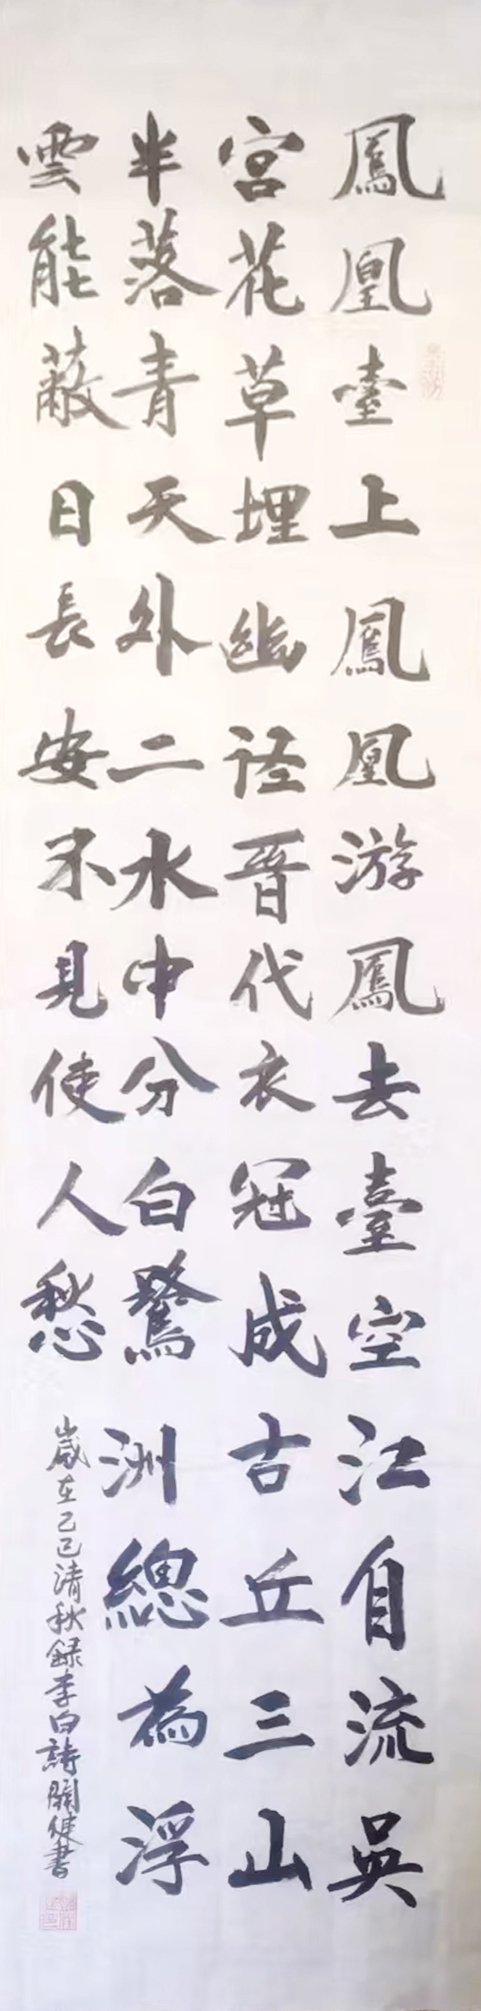 鳳凰臺上鳳凰游鳳去臺空江自流吳
宮花草埋幽径晉代衣冠成古丘三山
半落青天外二水中分白鷺洲總為浮
雲能蔽日長安不見使人愁
歲在乙巳清秋録李白詩關健書